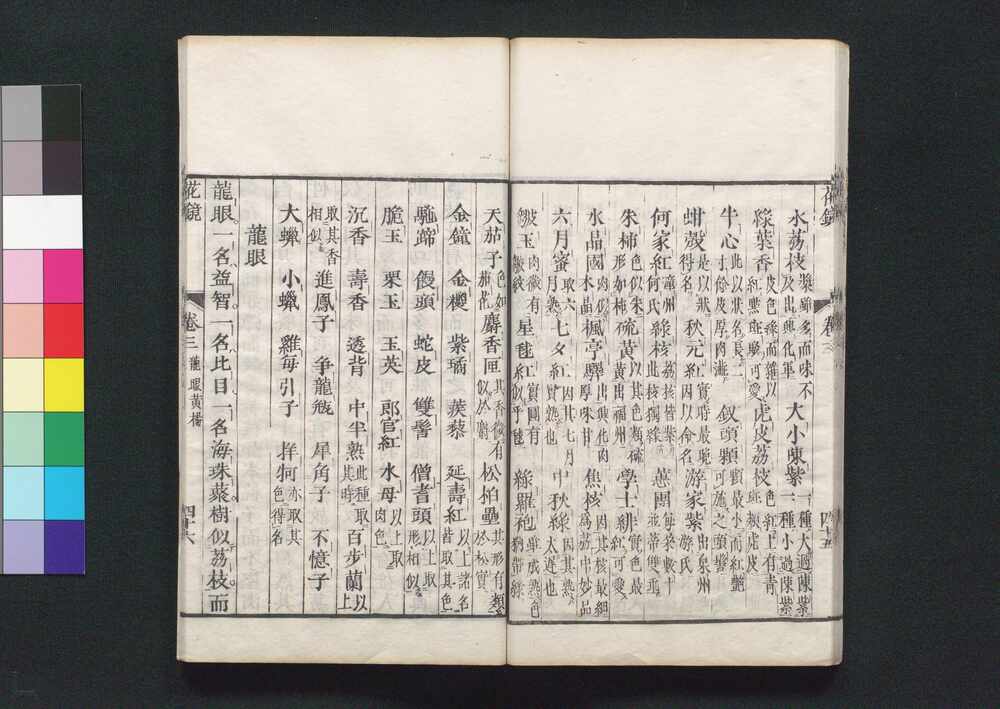 花鏡
卷三
四十五
水荔枝 漿多而味不及出興化軍 大小陳紫 一種大過陳紫一種小過陳紫
綠葉香 皮色綠而雜以紅點斑駁可愛 虎皮荔枝 色紅上有青斑類虎皮
牛心 此以狀名長二寸餘皮厚肉澁 釵頭顆 顆最小而紅艷可施之頭髻
蚶殼 是以狀得名 秋元紅 實時最晚因以命名 游家紫 出泉州游氏
何家紅 漳州何氏 綠核 荔核皆紫此核獨綠 蕙團 每朶數十並蒂雙垂
朱柿 色似朱形如柿 硫黃 以其色類硫黃出福州 學士緋 實色最紅可愛
水晶團 肉似水晶 楓亭驛 出興化肉厚味甘 焦核 因其核最細為荔中妙品
六月蜜 取六月熟 七夕紅 因其七月熟也 中秋綠 因其熟太遲也
皺玉 肉微有皺紋 星毬紅 實圓有紅似乎毬 綠羅袍 雖成熟色猶帶綠
天茄子 色如茄花 麝香匣 其香微有似於麝 松柏壘 其形有類於松實
金鐘 金櫻 紫璚 蒺藜 延壽紅 以上諸名皆取其色
驪蹄 饅頭 蛇皮 雙髻 僧耆頭 以上取形相似
脆玉 栗玉 玉英 郎官紅 水母 以上取肉色
沉香 壽香 透背 中半熟 此種取其時 百步蘭 以上
取其香相似 進鳳子 爭龍瓶 犀角子 不憶子
大蠟 小蠟 雞每引子 牂牁 亦取其色得名
龍眼
龍眼一名益智一名比目一名海珠叢樹似荔枝而
花鏡
卷三 龍眼黃楊
四十六